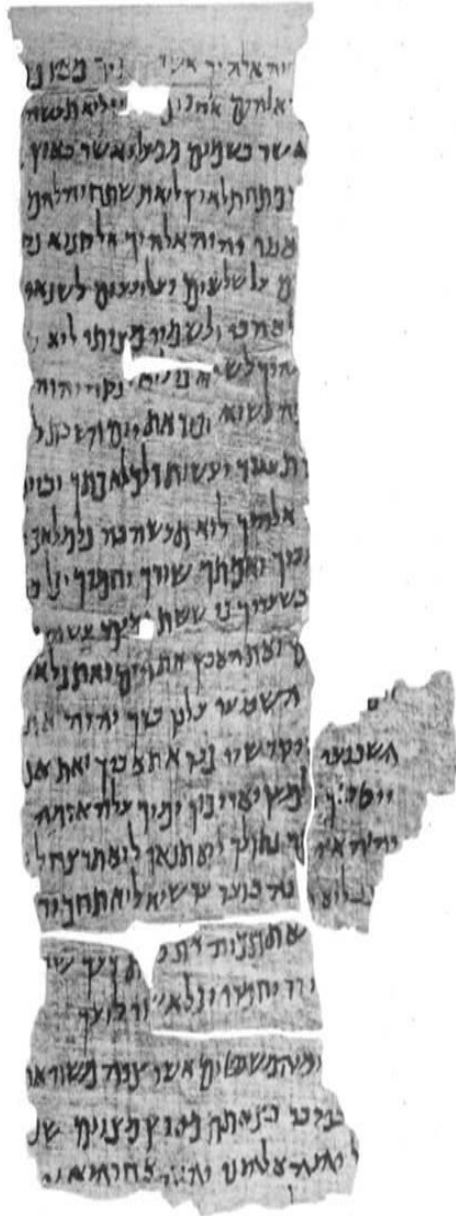 יהוה אלהיך אשר תיך מארץ מ
אלהים אחרים ני לוא תעשה
אשר בשמים ממעל ואשר בארץ
מתחת לארץ לוא תשתחוה להם
יהוה אלהיך אל קנוא
ם על שלשים ועל רבעים לשנאי
לאהבי ולשמרי מצותי לוא
להיך לשוא כי לוא ינקה יהוה
ה לשוא זכור את יום השבת ל
תעבוד ועשית כל מלאכתך וביום
אלהיך לוא תעשה בה כל מלאכה
עבדך ואמתך שורך וחמרך וכל ב
בשעריך כי ששת ימים עשה
ם ואת הארץ את הים ואת כל א
השביעי על כן ברך יהוה את
השביעי ויקדשיו כבד את אביך ואת אמ
ייטב לך ולמען יאריכון ימיך על האדמה
יהוה אל ך נתן לך לוא תנאף לוא תרצח לו
לוא ענה ברעך עד שוא לוא תחמוד
את בית רעך שד
ורו וחמרו וכל אשר לרעך
ים והמשפטים אשר צוה משה את
במדבר בצאתם מארץ מצרים שמ
ל יהוה אלהינו יהוה אחד הוא וא